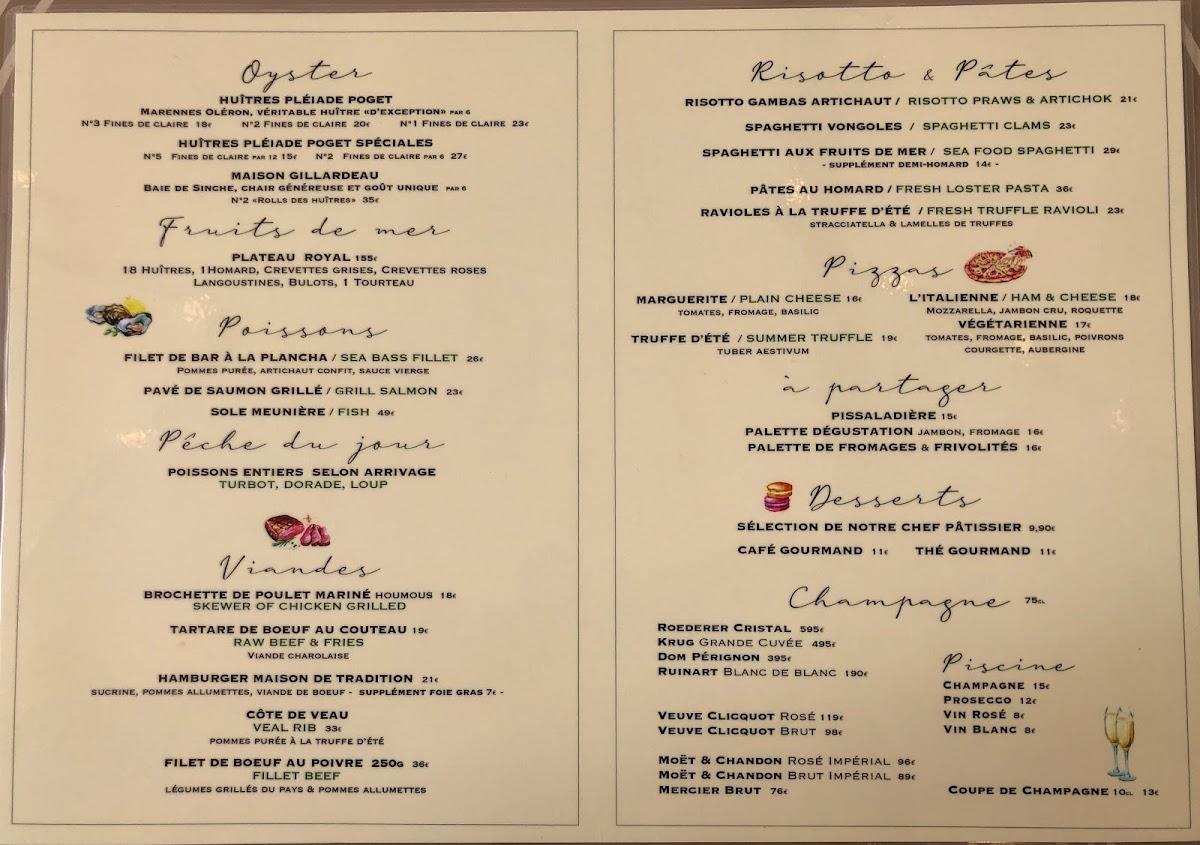 Oyster
HUÎTRES PLÉIADE POGET
MARENNES OLÉRON, VÉRITABLE HUÎTRE «D'EXCEPTION» PAR 6
N°3 FINES DE CLAIRE 18€ N°2 FINES DE CLAIRE 20€ N°1 FINES DE CLAIRE 23€
HUÎTRES PLÉIADE POGET SPÉCIALES
N°5 FINES DE CLAIRE PAR 12 15€ N°2 FINES DE CLAIRE PAR 6 27€
MAISON GILLARDEAU
BAIE DE SINCHE, CHAIR GÉNÉREUSE ET GOÛT UNIQUE PAR 6
N°2 «ROLLS DES HUÎTRES» 35€
Fruits de mer
PLATEAU ROYAL 155€
18 HUÎTRES, 1HOMARD, CREVETTES GRISES, CREVETTES ROSES
LANGOUSTINES, BULOTS, 1 TOURTEAU
Poissons
FILET DE BAR À LA PLANCHA / SEA BASS FILLET 26€
POMMES PURÉE, ARTICHAUT CONFIT, SAUCE VIERGE
PAVÉ DE SAUMON GRILLÉ / GRILL SALMON 23€
SOLE MEUNIÈRE / FISH 49€
Pêche du jour
POISSONS ENTIERS SELON ARRIVAGE
TURBOT, DORADE, LOUP
Viandes
BROCHETTE DE POULET MARINÉ HOUMOUS 18€
SKEWER OF CHICKEN GRILLED
TARTARE DE BOEUF AU COUTEAU 19€
RAW BEEF & FRIES
VIANDE CHAROLAISE
HAMBURGER MAISON DE TRADITION 21€
SUCRINE, POMMES ALLUMETTES, VIANDE DE BOEUF - SUPPLÉMENT FOIE GRAS 7€ -
CÔTE DE VEAU
VEAL RIB 33€
POMMES PURÉE À LA TRUFFE D'ÉTÉ
FILET DE BOEUF AU POIVRE 250G 36€
FILLET BEEF
LÉGUMES GRILLÉS DU PAYS & POMMES ALLUMETTES
Risotto & Pâtes
RISOTTO GAMBAS ARTICHAUT / RISOTTO PRAWS & ARTICHOK 21€
SPAGHETTI VONGOLES / SPAGHETTI CLAMS 23€
SPAGHETTI AUX FRUITS DE MER / SEA FOOD SPAGHETTI 29€
- SUPPLÉMENT DEMI-HOMARD 14€ -
PÂTES AU HOMARD / FRESH LOSTER PASTA 36€
RAVIOLES À LA TRUFFE D'ÉTÉ / FRESH TRUFFLE RAVIOLI 23€
STRACCIATELLA & LAMELLES DE TRUFFES
Pizzas
MARGUERITE / PLAIN CHEESE 16€
TOMATES, FROMAGE, BASILIC
TRUFFE D'ÉTÉ / SUMMER TRUFFLE 19€
TUBER AESTIVUM
L'ITALIENNE / HAM & CHEESE 18€
MOZZARELLA, JAMBON CRU, ROQUETTE
VÉGÉTARIENNE 17€
TOMATES, FROMAGE, BASILIC, POIVRONS
COURGETTE, AUBERGINE
à partager
PISSALADIÈRE 15€
PALETTE DÉGUSTATION JAMBON, FROMAGE 16€
PALETTE DE FROMAGES & FRIVOLITÉS 16€
Desserts
SÉLECTION DE NOTRE CHEF PÂTISSIER 9,90€
CAFÉ GOURMAND 11€ THÉ GOURMAND 11€
Champagne 75CL
ROEDERER CRISTAL 595€
KRUG GRANDE CUVÉE 495€
DOM PÉRIGNON 395€
RUINART BLANC DE BLANC 190€
VEUVE CLICQUOT ROSÉ 119€
VEUVE CLICQUOT BRUT 98€
MOËT & CHANDON ROSÉ IMPÉRIAL 96€
MOËT & CHANDON BRUT IMPÉRIAL 89€
MERCIER BRUT 76€
Piscine
CHAMPAGNE 15€
PROSECCO 12€
VIN ROSÉ 8€
VIN BLANC 8€
COUPE DE CHAMPAGNE 10CL 13€